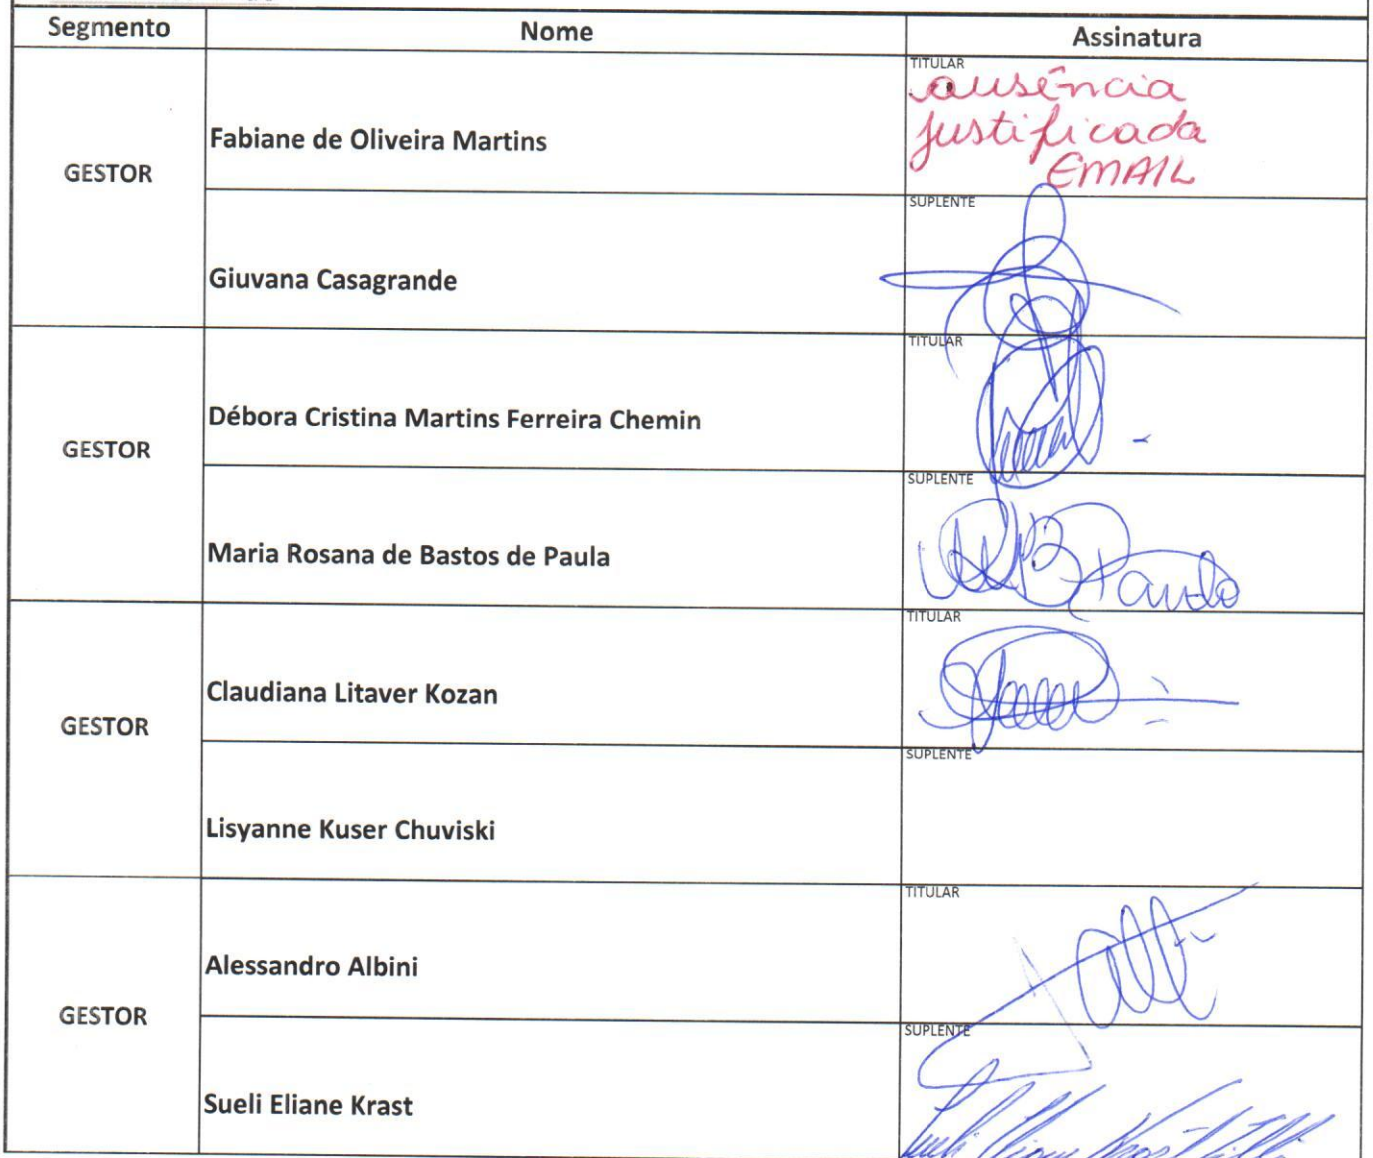 Segmento Nome Assinatura
GESTOR
Fabiane de Oliveira Martins
TITULAR
ausência
justificada
EMAIL
Giuvana Casagrande
SUPLENTE
GESTOR
Débora Cristina Martins Ferreira Chemin
TITULAR
Maria Rosana de Bastos de Paula
SUPLENTE
GESTOR
Claudiana Litaver Kozan
TITULAR
Lisyanne Kuser Chuviski
SUPLENTE
GESTOR
Alessandro Albini
TITULAR
Sueli Eliane Krast
SUPLENTE